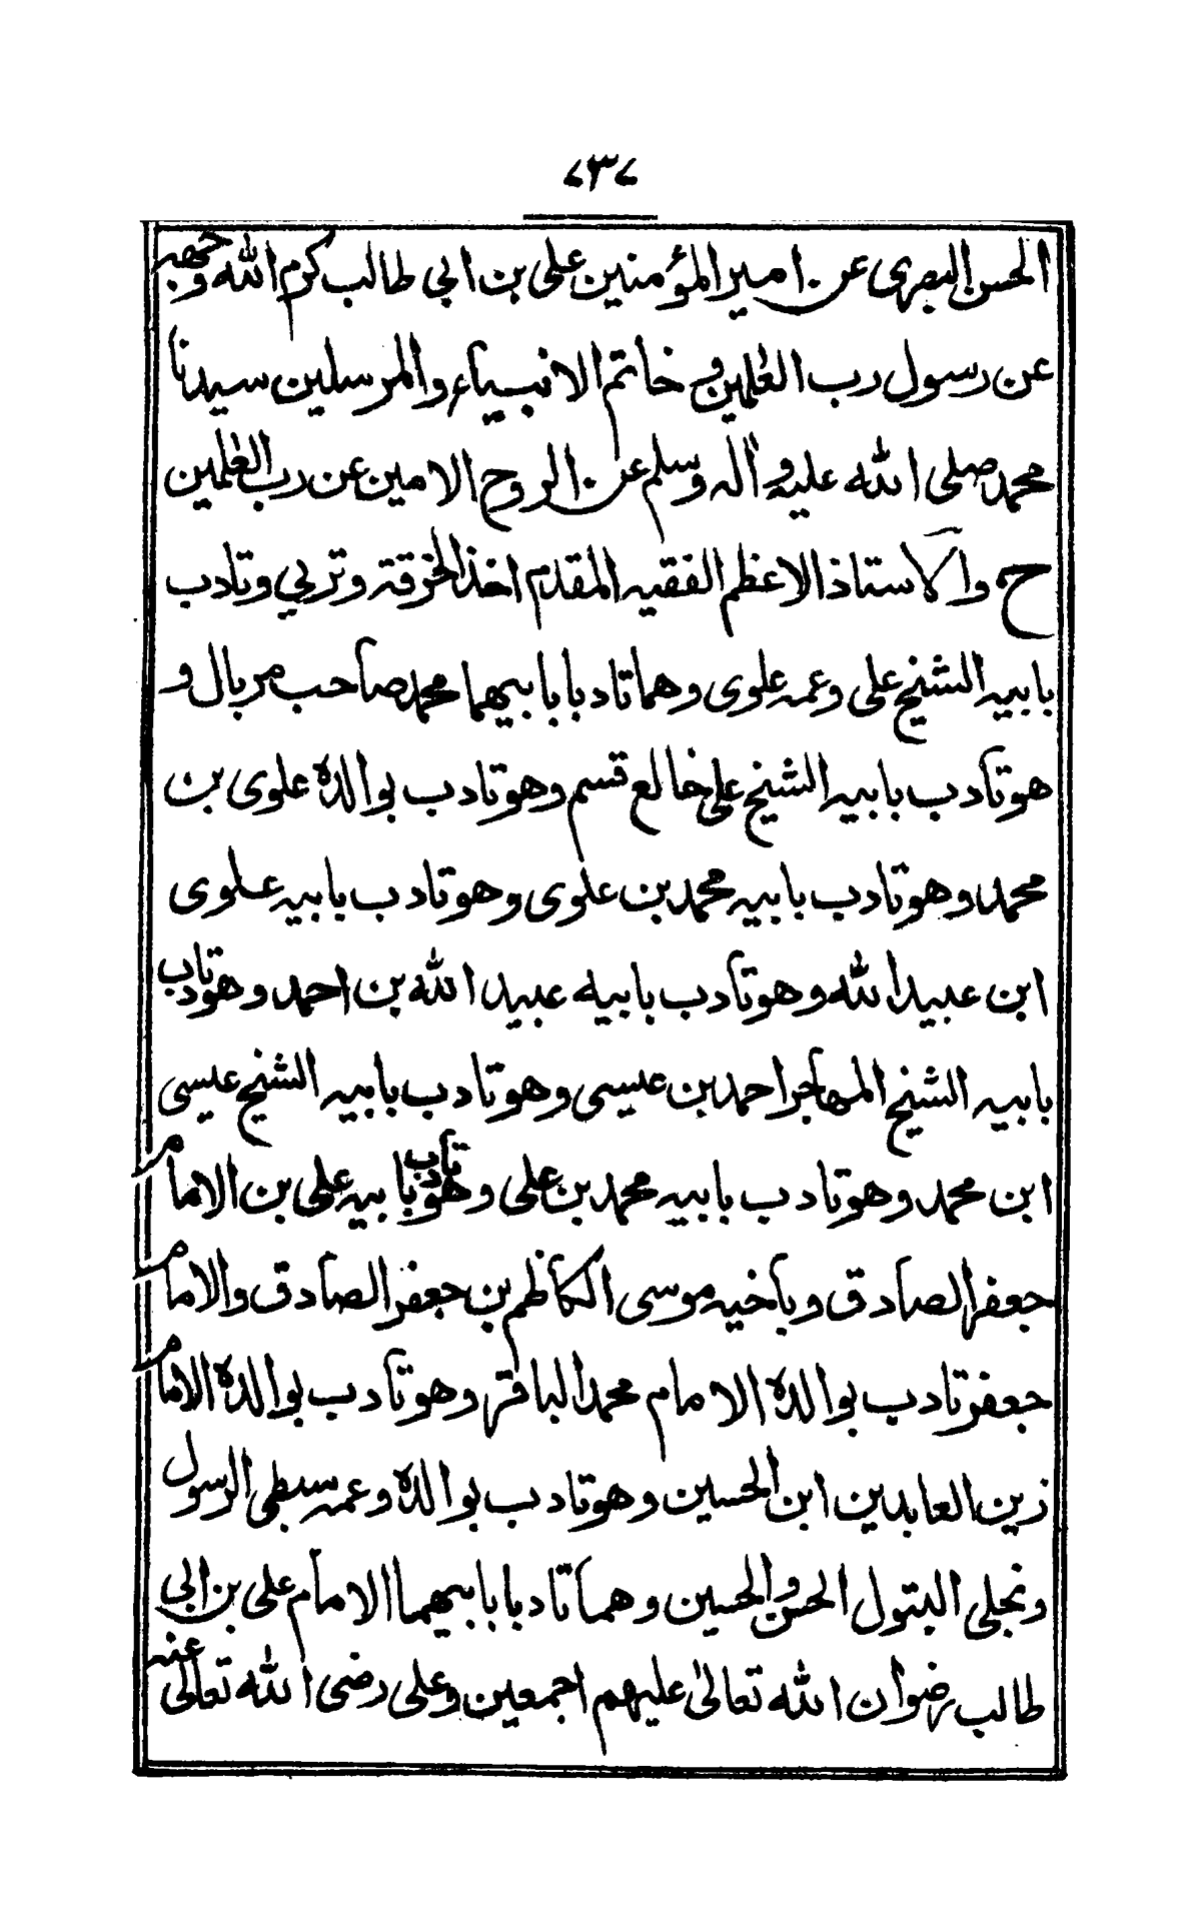 ٧٣٧
الحسن البصری عن امیر المؤمنین علی بن ابی طالب کرم الله وجهه
عن رسول رب العٰلمین و خاتم الانبیاء والمرسلین سیدنا
محمد صلی الله علیه و اٰله وسلم عن الروح الامین عن رب العٰلمین
ح والاستاذ الاعظم الفقیه المقدم اخذ الخرقة وتربی وتادب
بابیه الشیخ علی وعمه علوی وهما تادبا بابیهما محمد صاحب مربال و
هو تادب بابیه الشیخ علی خالع قسم وهو تادب بوالده علوی بن
محمد وهو تادب بابیه محمد بن علوی وهو تادب بابیه علوی
ابن عبید الله وهو تادب بابیه عبید الله بن احمد وهو تادب
بابیه الشیخ المهاجر احمد بن عیسی وهو تادب بابیه الشیخ عیسی
ابن محمد وهو تادب بابیه محمد بن علی وهو تادب بابیه علی بن الامام
جعفر الصادق وباخیه موسی الکاظم بن جعفر الصادق والامام
جعفر تادب بوالده الامام محمد الباقر وهو تادب بوالده الامام
زین العابدین ابن الحسین وهو تادب بوالده وعمه سبطی الرسول
ونجلی البتول الحسن والحسین وهما تادبا بابیهما الامام علی بن ابی
طالب رضوان الله تعالیٰ علیهم اجمعین وعلی رضی الله تعالیٰ عنه